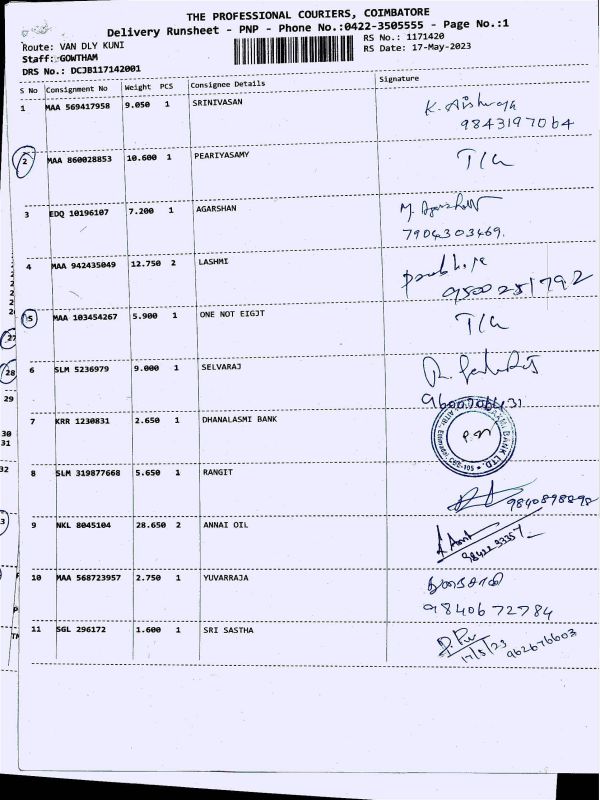 THE PROFESSIONAL COURIERS, COIMBATORE
Delivery Runsheet - PNP - Phone No.:0422-3505555 - Page No.:1
Route: VAN DLY KUNI RS No.: 1171420
Staff: GOWTHAM RS Date: 17-May-2023
DRS No.: DCJB117142001
S No Consignment No Weight PCS Consignee Details Signature
1 MAA 569417958 9.050 1 SRINIVASAN
9843197064
2 MAA 860028853 10.600 1 PEARIYASAMY
3 EDQ 10196107 7.200 1 AGARSHAN
7904303469.
4 MAA 942435049 12.750 2 LASHMI
9500251792
5 MAA 103454267 5.900 1 ONE NOT EIGJT
6 SLM 5236979 9.000 1 SELVARAJ
7 KRR 1230831 2.650 1 DHANALASMI BANK
BANK LTD.
8 SLM 319877668 5.650 1 RANGIT
9840898898
9 NKL 8045104 28.650 2 ANNAI OIL
10 MAA 568723957 2.750 1 YUVARRAJA
9840672784
11 SGL 296172 1.600 1 SRI SASTHA
17/5/23 962676603
28
29
30
31
32